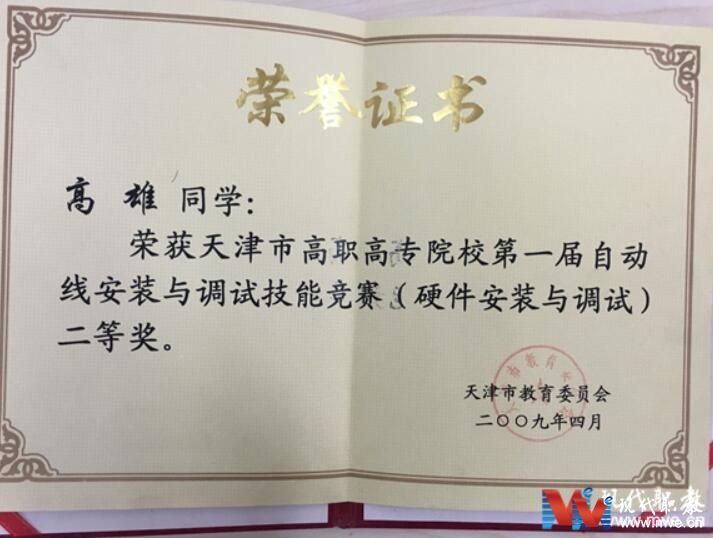 荣誉证书
高雄 同学：
荣获天津市高职高专院校第一届自动
线安装与调试技能竞赛（硬件安装与调试）
二等奖。
天津市教育委员会
二〇〇九年四月
现代职教
www.mve.cn